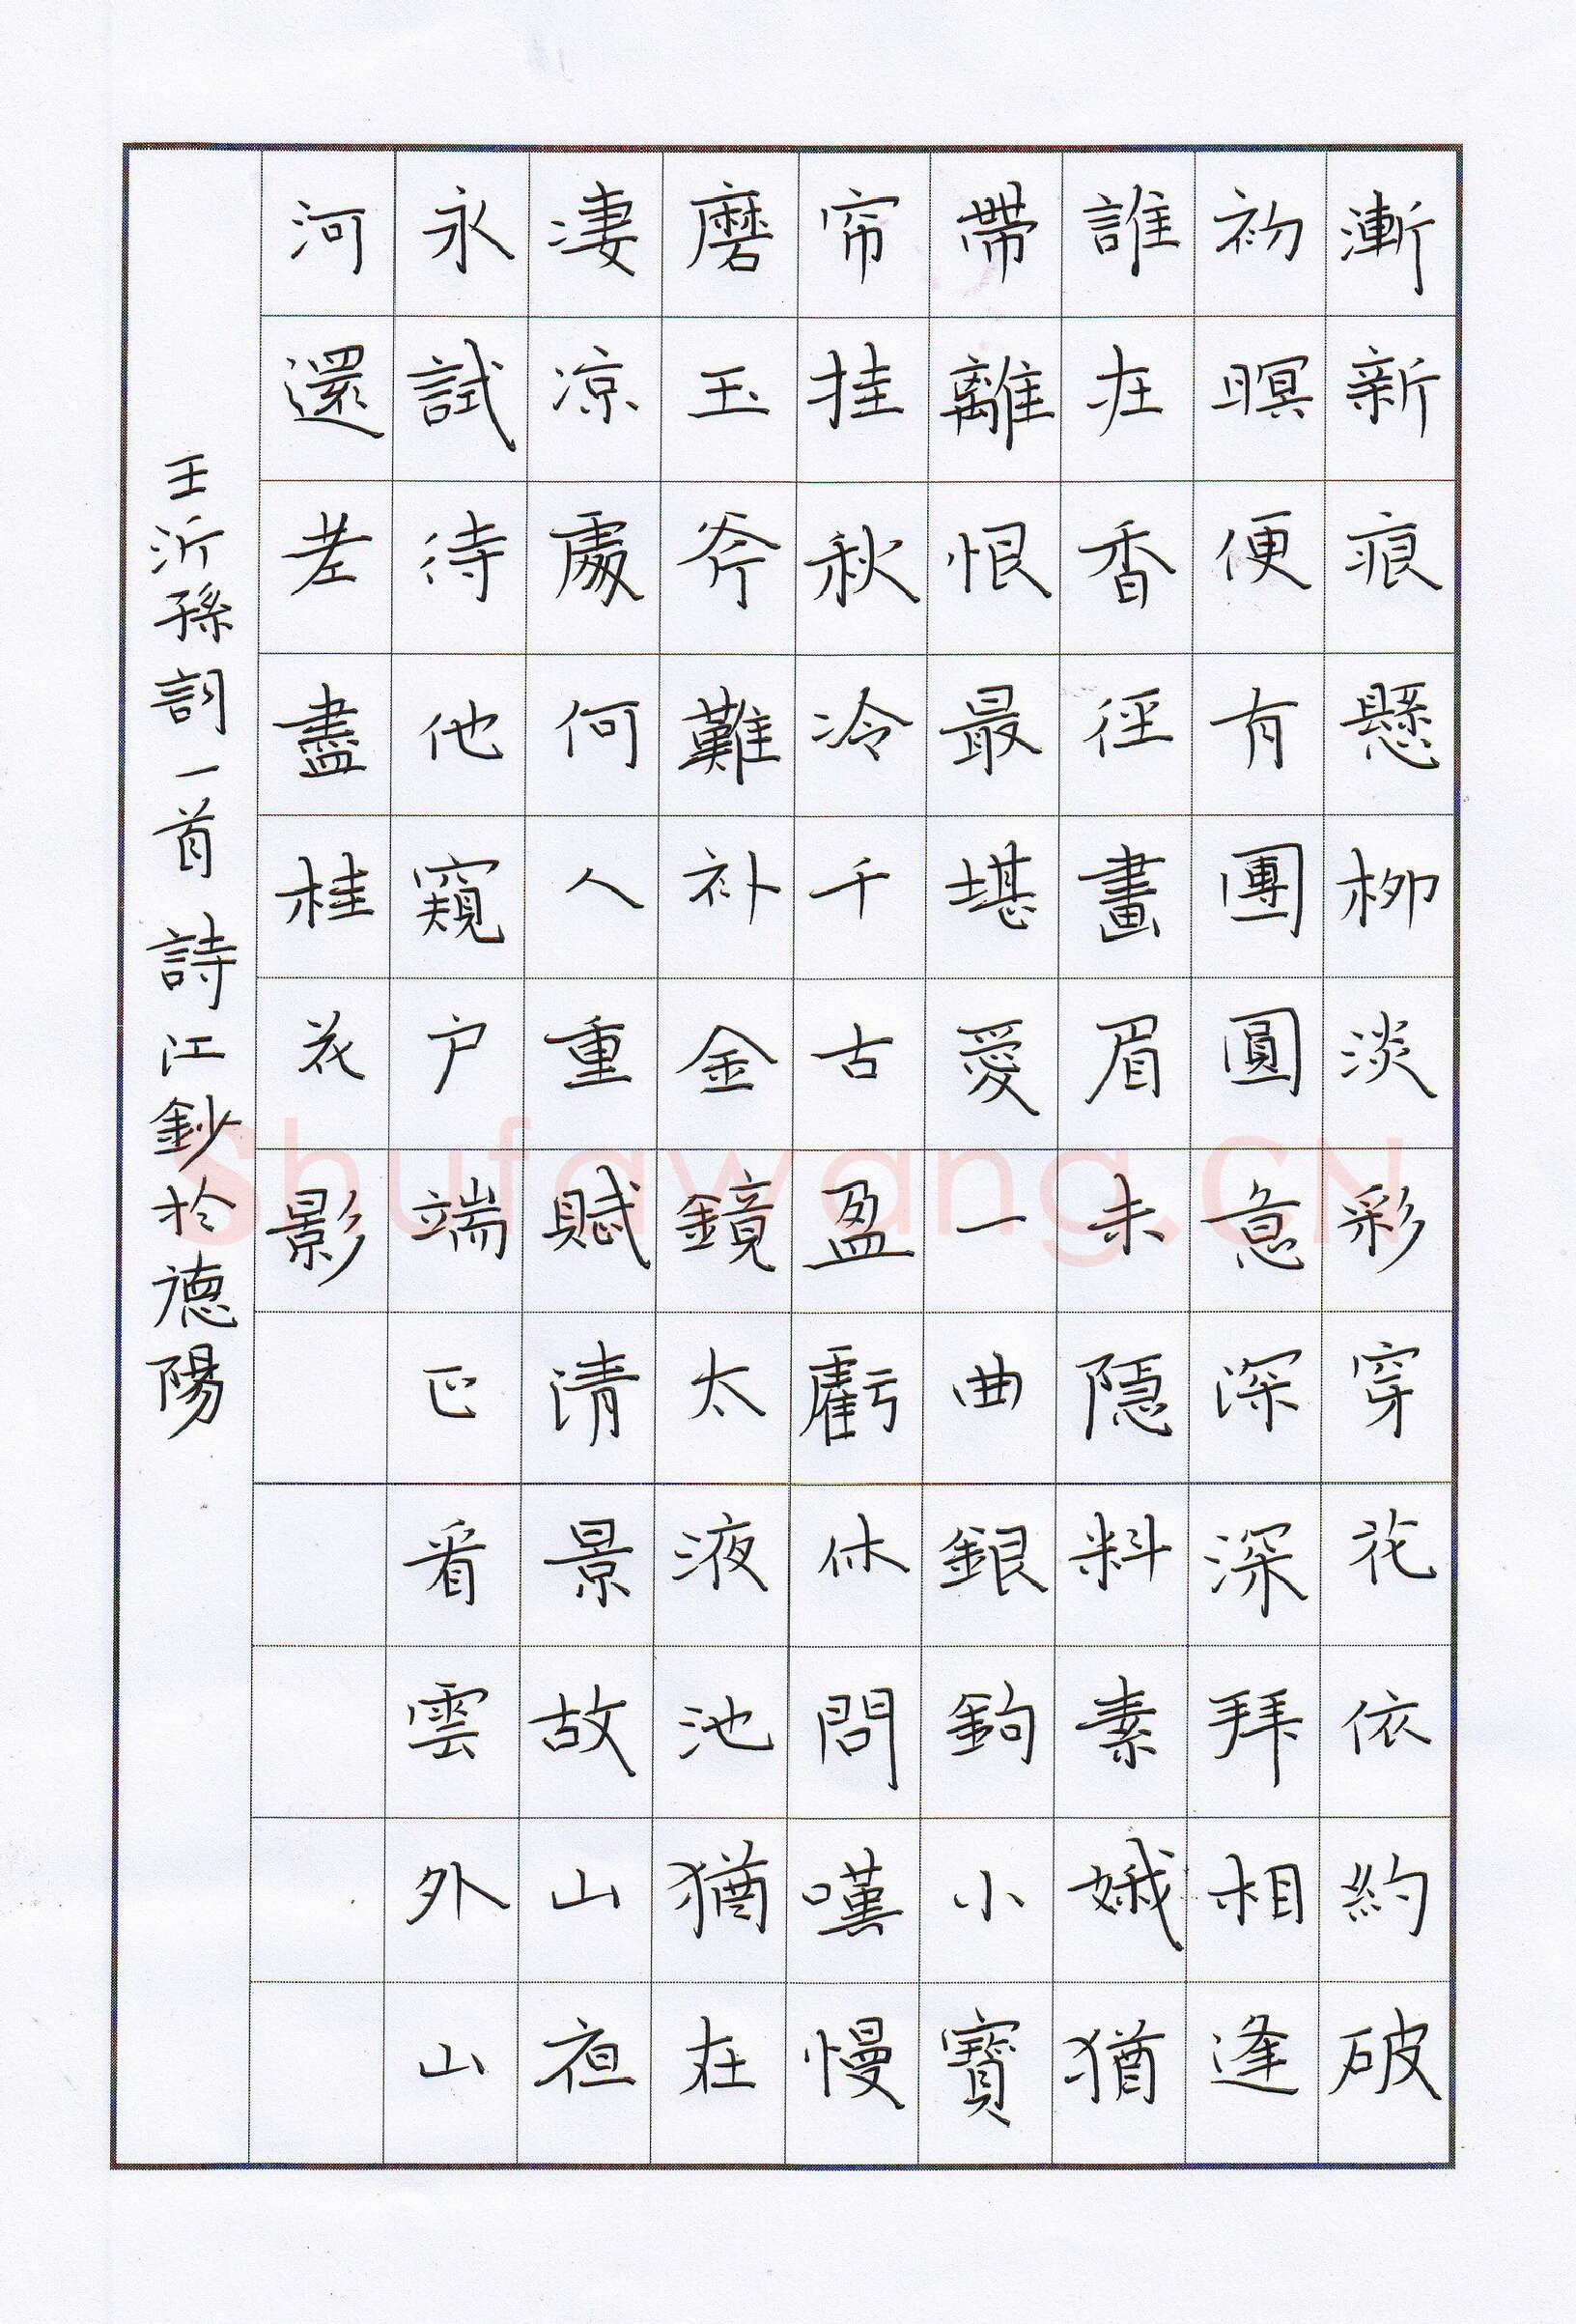 漸新痕懸柳淡彩穿花依約破
初暝便有團圓意深深拜相逢
誰在香徑畫眉未隱料素娥猶
帶離恨最堪愛一曲銀鉤小寶
帘挂秋冷千古盈虧休問嘆慢
磨玉斧難補金鏡太液池猶在
淒涼處何人重賦清景故山夜
永試待他窺户端正看雲外山
河還老盡桂花影
王沂孫詞一首 詩江鈔於德陽
Shufawang.CN